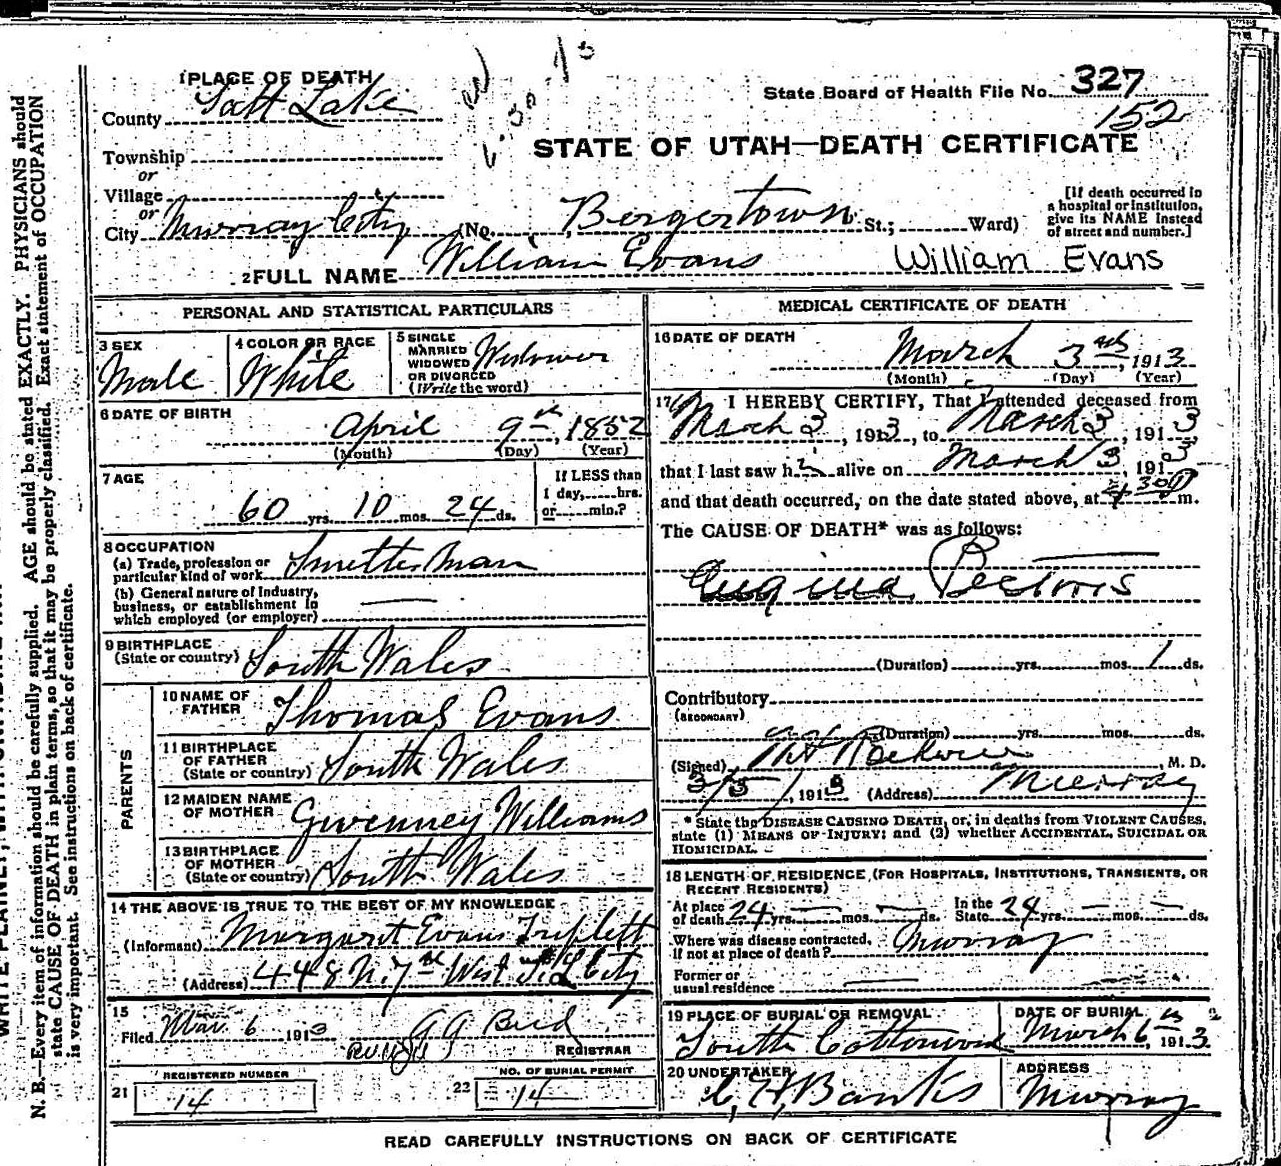 1 PLACE OF DEATH
County Salt Lake
State Board of Health File No. 327
152
STATE OF UTAH—DEATH CERTIFICATE
Township
or
Village
or
City Murray City (No. Bergertown St.; Ward)
[If death occurred in a hospital or institution, give its NAME instead of street and number.]
2 FULL NAME William Evans William Evans
PERSONAL AND STATISTICAL PARTICULARS
3 SEX
Male
4 COLOR OR RACE
White
5 SINGLE
MARRIED
WIDOWED
OR DIVORCED
(Write the word)
Widower
6 DATE OF BIRTH
April 9th, 1852
(Month) (Day) (Year)
7 AGE
60 yrs. 10 mos. 24 ds.
If LESS than
1 day, hrs.
or min.?
8 OCCUPATION
(a) Trade, profession or
particular kind of work Smelter Man
(b) General nature of Industry,
business, or establishment in
which employed (or employer)
9 BIRTHPLACE
(State or country) South Wales
PARENTS
10 NAME OF
FATHER Thomas Evans
11 BIRTHPLACE
OF FATHER
(State or country) South Wales
12 MAIDEN NAME
OF MOTHER Gwenney Williams
13 BIRTHPLACE
OF MOTHER
(State or country) South Wales
14 THE ABOVE IS TRUE TO THE BEST OF MY KNOWLEDGE
(Informant) Margaret Evans Triplett
(Address) 448 N. 7th West S. L. City
15
Filed Mar. 6 1913
REGISTRAR
REGISTERED NUMBER
21 14
NO. OF BURIAL PERMIT
22 14
MEDICAL CERTIFICATE OF DEATH
16 DATE OF DEATH
March 3rd, 1913
(Month) (Day) (Year)
17 I HEREBY CERTIFY, That I attended deceased from
March 3, 1913, to March 3, 1913,
that I last saw h alive on March 3, 1913
and that death occurred, on the date stated above, at 4 30 P m.
The CAUSE OF DEATH* was as follows:
Angina Pectoris
(Duration) yrs. mos. 1 ds.
Contributory
(SECONDARY)
(Duration) yrs. mos. ds.
(Signed) , M. D.
3/5, 1913 (Address) Murray
* State the DISEASE CAUSING DEATH, or, in deaths from VIOLENT CAUSES,
state (1) MEANS OF INJURY; and (2) whether ACCIDENTAL, SUICIDAL OR
HOMICIDAL.
18 LENGTH OF RESIDENCE (FOR HOSPITALS, INSTITUTIONS, TRANSIENTS, OR
RECENT RESIDENTS)
At place of death 24 yrs. mos. ds. In the State 24 yrs. mos. ds.
Where was disease contracted,
if not at place of death? Murray
Former or
usual residence
19 PLACE OF BURIAL OR REMOVAL
South Cottonwood
DATE OF BURIAL
March 6th 1913
20 UNDERTAKER
C. H. Banks
ADDRESS
Murray
READ CAREFULLY INSTRUCTIONS ON BACK OF CERTIFICATE
N. B.—Every item of information should be carefully supplied. AGE should be stated EXACTLY. PHYSICIANS should
state CAUSE OF DEATH in plain terms, so that it may be properly classified. Exact statement of OCCUPATION
is very important. See instructions on back of certificate.